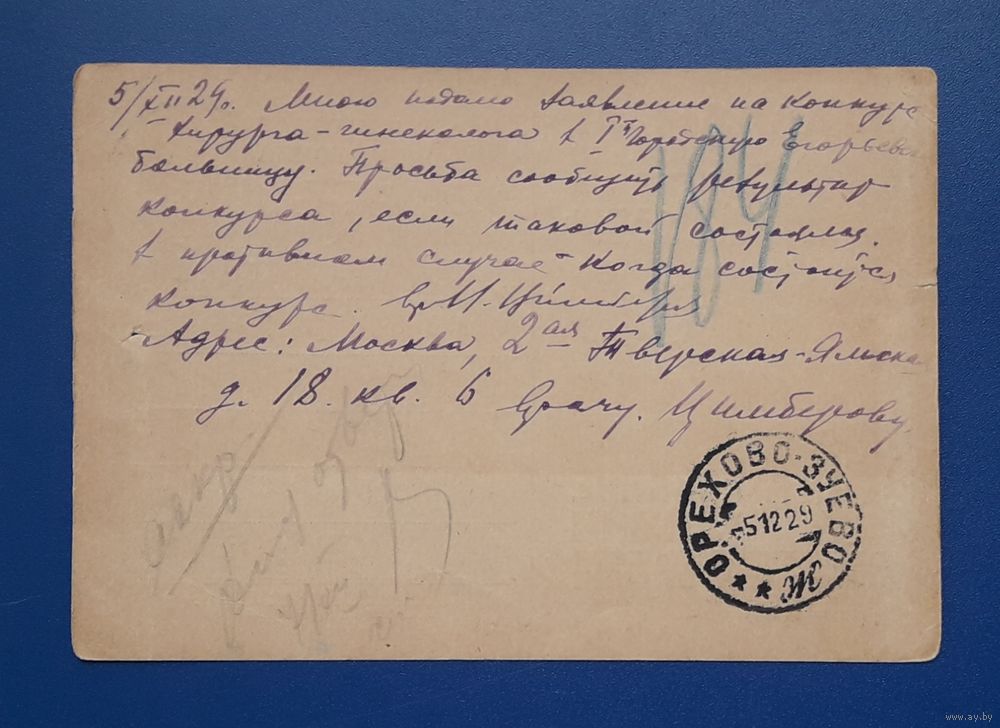 5/XII 29г. Мною подано заявление на конкурс
хирурга-гинеколога в Iю Городскую Егорьевск
больницу. Просьба сообщить результат
конкурса, если таковой состоялся.
в противном случае когда состоится
конкурс.
Адрес: Москва, 2ая Тверская-Ямская
д. 18. кв. 6 врачу. Цимберову
184
ОРЕХОВО-ЗУЕВО
51229
Ж
www.ay.by